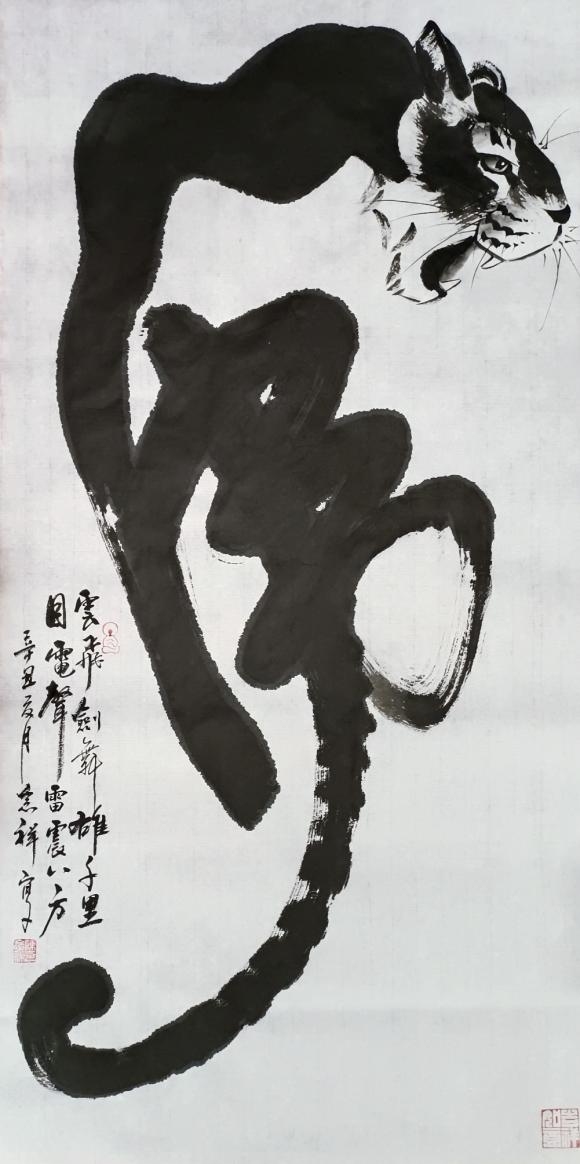 虎
雲飛劍舞雄千里
目電聲雷震八方
辛丑夏月祥寫